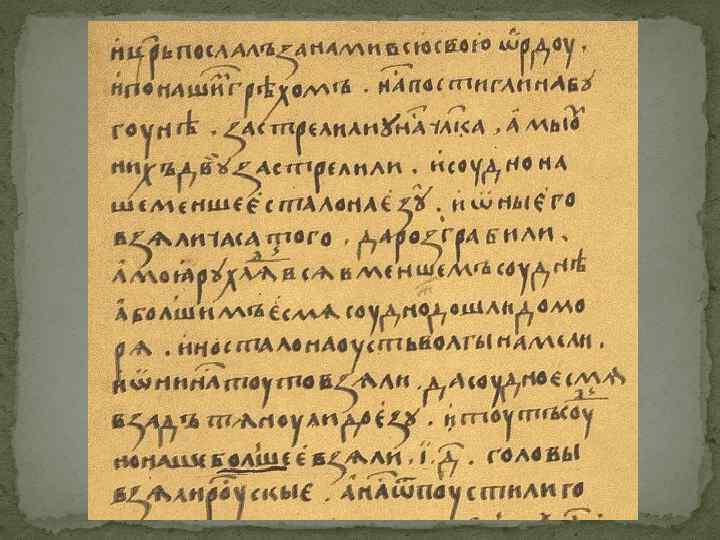 и црь послалъ за нами всю свою ѡрдоу .
и по нашим грѣхомъ . нас постигли на бѹ
гоунѣ . застрелили ѹ нас члка , а мы ѹ
нихъ двѹ застрелили . и соудно на
ше меншеє стало на єзѹ . и ѡны єго
взяли часа того . да розграбили .
а моя рухлѧ вся в меншемъ соуднѣ
а болшимъ єсмѧ соудно дошли до мо
рѧ . ино стало на оусть волгы на мели .
и ѡни нас тоуто взѧли , да соудно єсмѧ
взадъ тѧноули до єзѹ . и тоутъ соу
но наше болшеє взѧли . ї . д . головы
взѧли роускыє . а нас ѿпоустили го